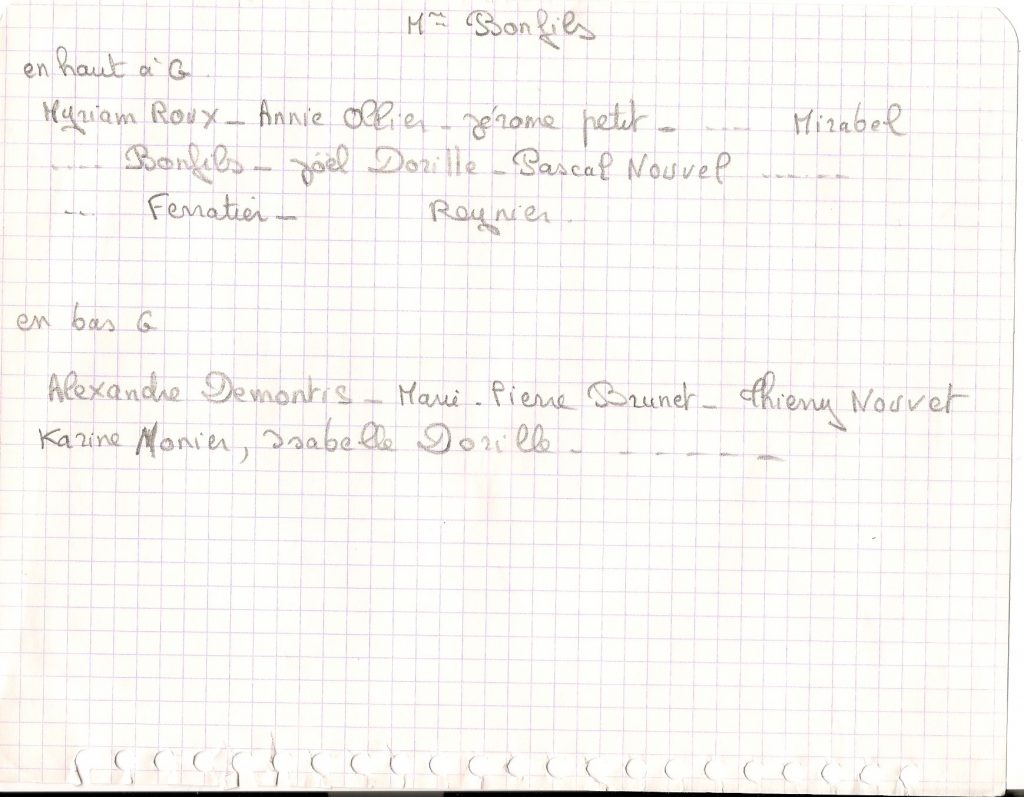 Mme Bonfils
en haut à G
Myriam Roux - Annie Ollier - Jérome petit - .... Mirabel
.... Bonfils - Joël Dorille - Pascal Nouvel ......
... Ferratier - Reynier.
en bas G
Alexandre Demontis - Marie-Pierre Brunet - Thierry Nouvet
Karine Monier, Isabelle Dorille - - - - - -